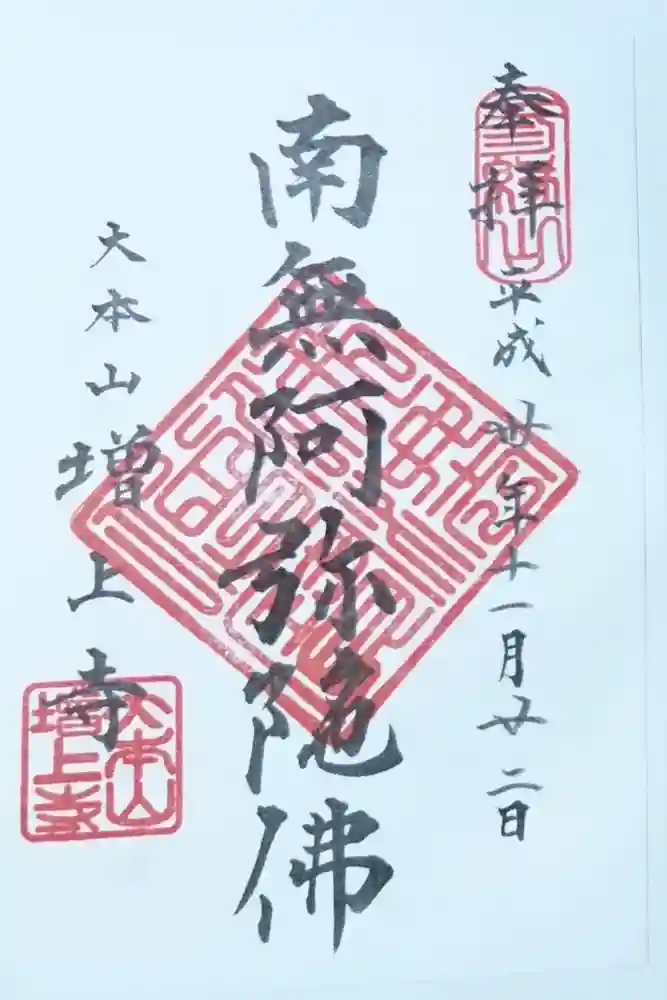 奉拝
平成卅年十一月廿二日
南無阿弥陀佛
大本山増上寺
大本山
増上寺